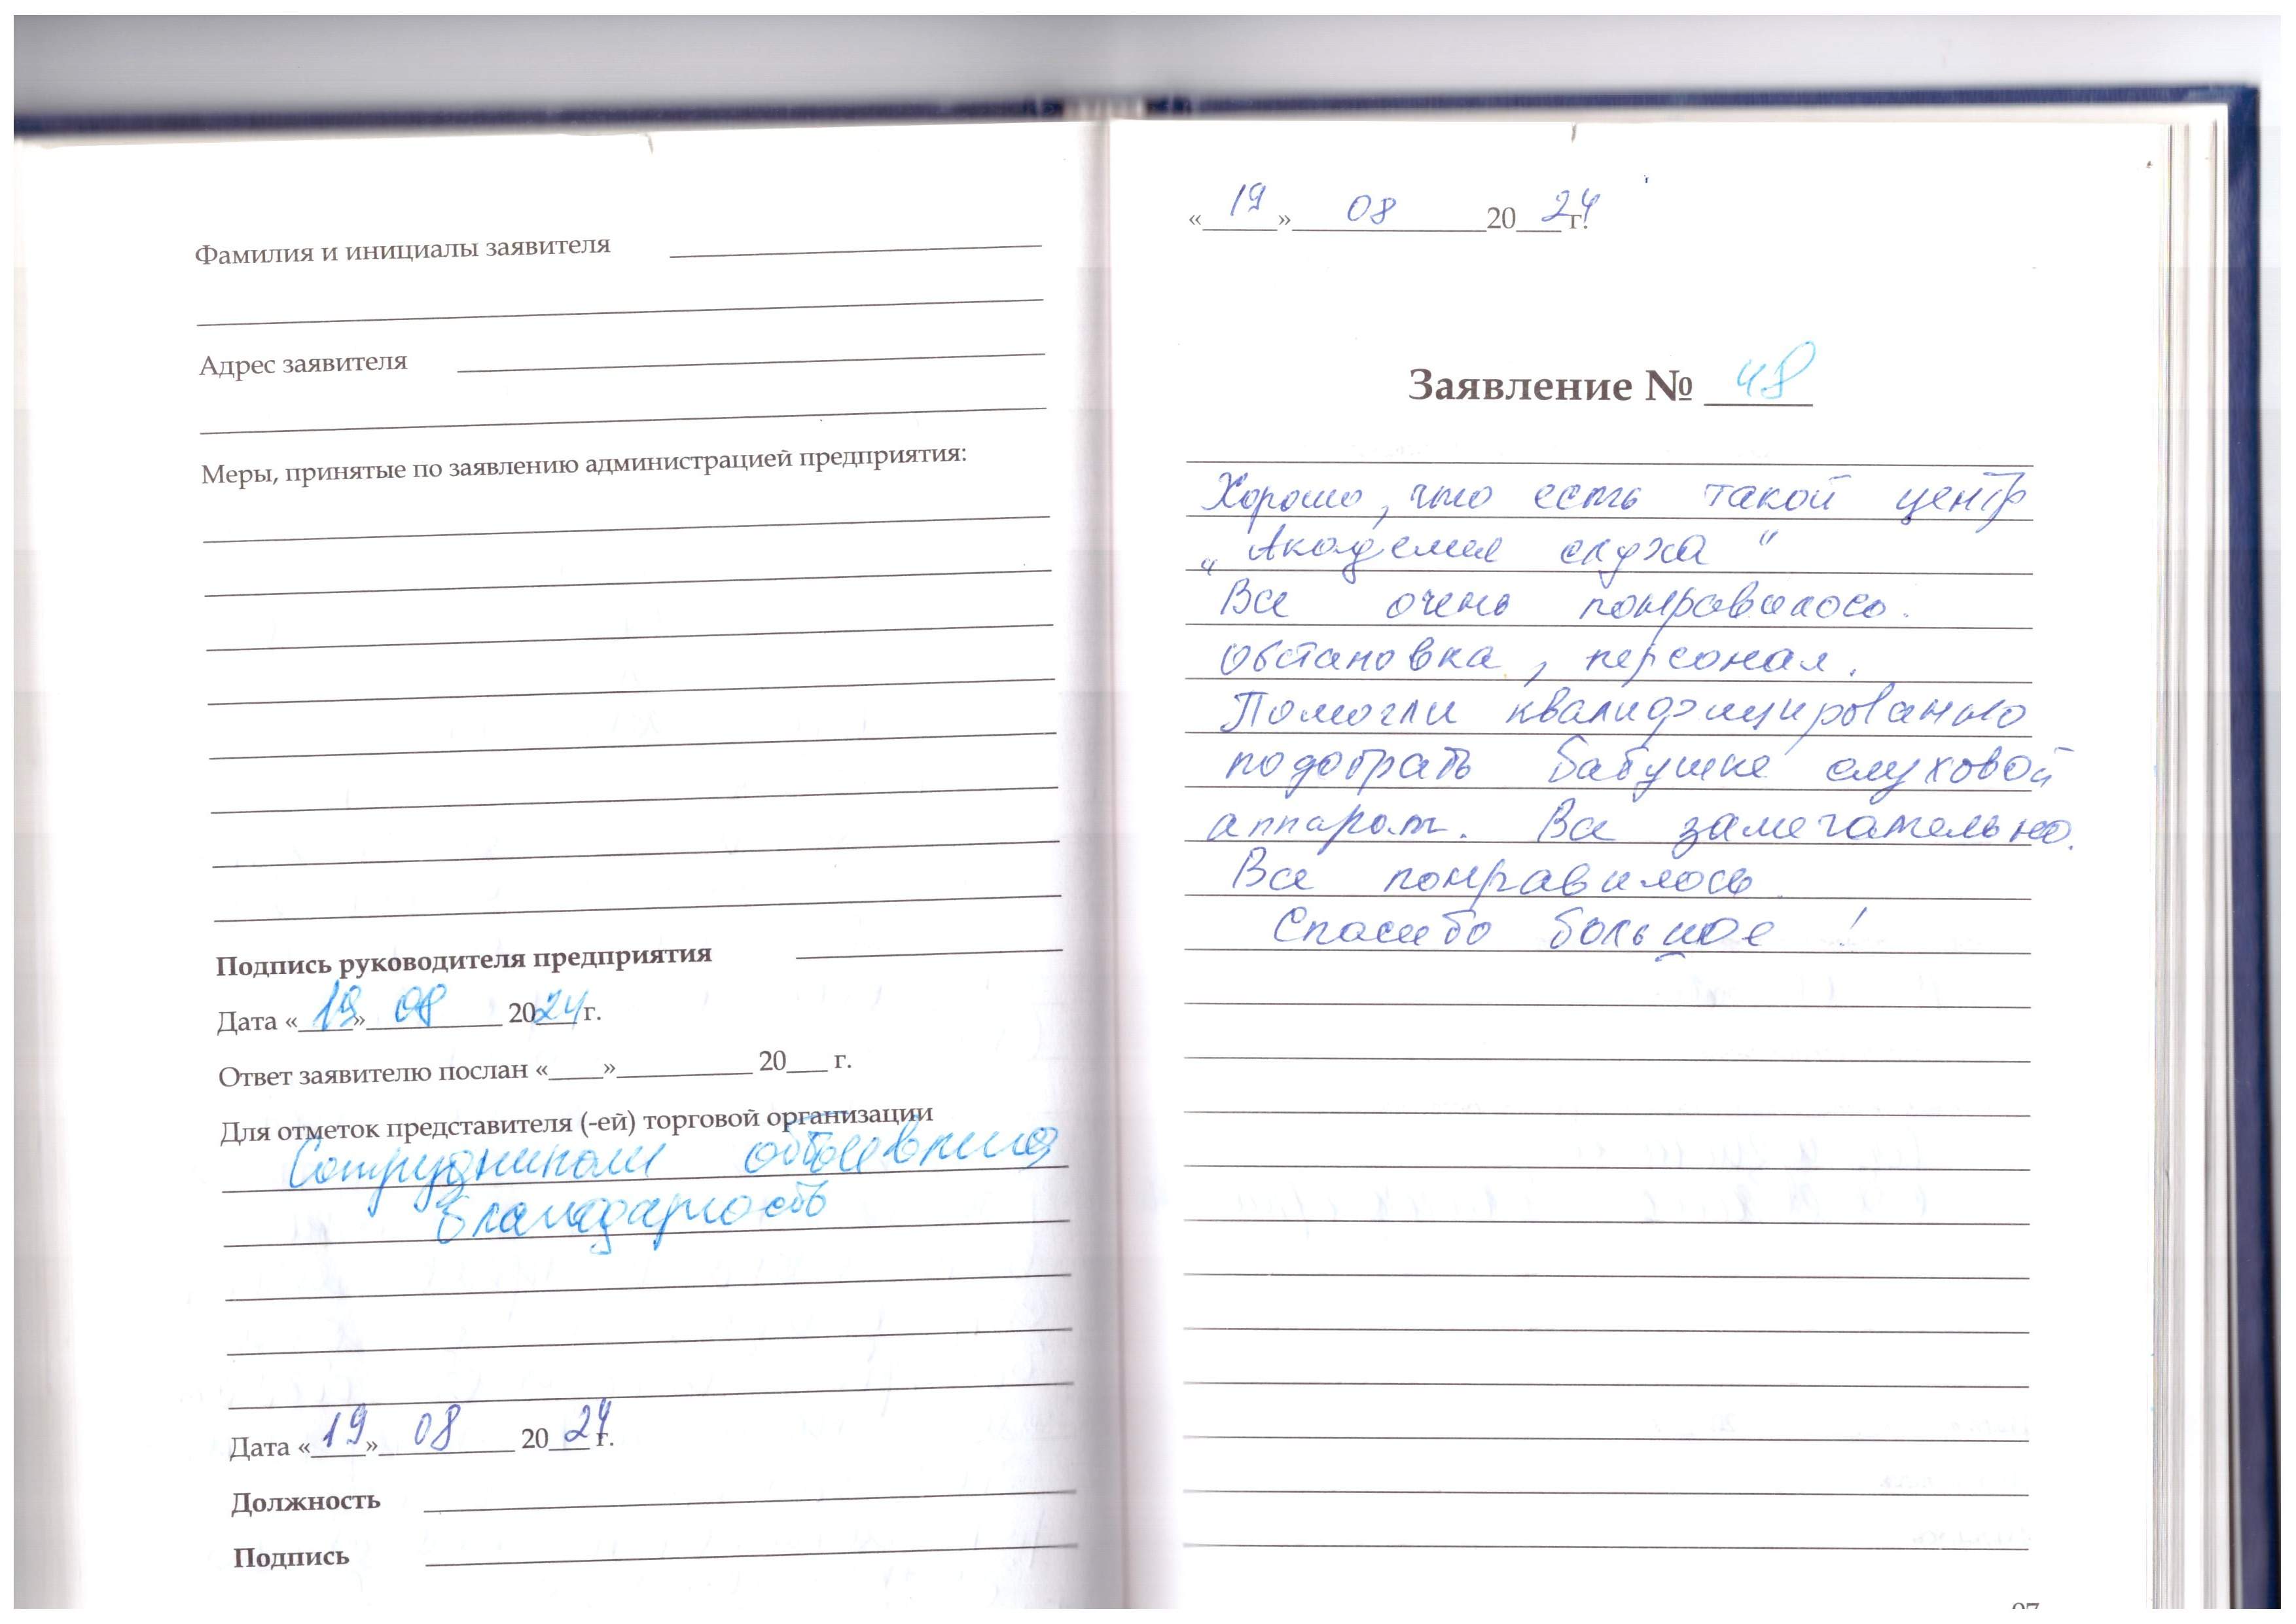 Фамилия и инициалы заявителя
Адрес заявителя
Меры, принятые по заявлению администрацией предприятия:
Подпись руководителя предприятия
Дата «19» 08 2024 г.
Ответ заявителю послан «____»__________ 20___ г.
Для отметок представителя (-ей) торговой организации
Сотрудникам объявлена
благодарность
Дата «19» 08 2024 г.
Должность
Подпись
«19» 08 2024 г.
Заявление № 48
Хорошо, что есть такой центр
„Академия слуха“
Все очень понравилось.
обстановка, персонал.
Помогли квалифицированно
подобрать бабушке слуховой
аппарат. Все замечательно.
Все понравилось
Спасибо большое!